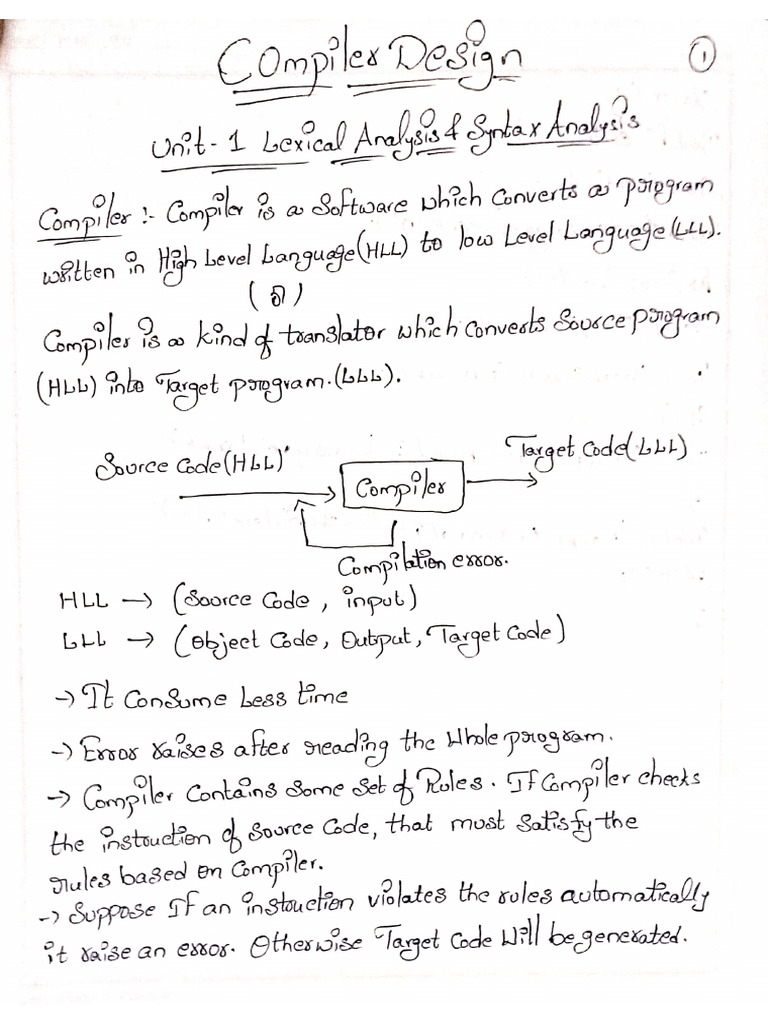 Compiler Design
1
Unit-1 Lexical Analysis & Syntax Analysis
Compiler :- Compiler is a Software which Converts a program
written in High Level Language(HLL) to low Level Language(LLL).
(or)
Compiler is a kind of translator which converts Source program
(HLL) into Target program.(LLL).
Source Code(HLL)
Target Code(LLL)
Compiler
Compilation error.
HLL → (Source Code, input)
LLL → (Object Code, Output, Target Code)
→ It Consume Less time
→ Error raises after reading the whole program.
→ Compiler Contains Some Set of Rules. If Compiler checks
the instruction of Source Code, that must Satisfy the
rules based on Compiler.
→ Suppose If an instuction violates the rules automatically
it raise an error. Otherwise Target Code will be generated.